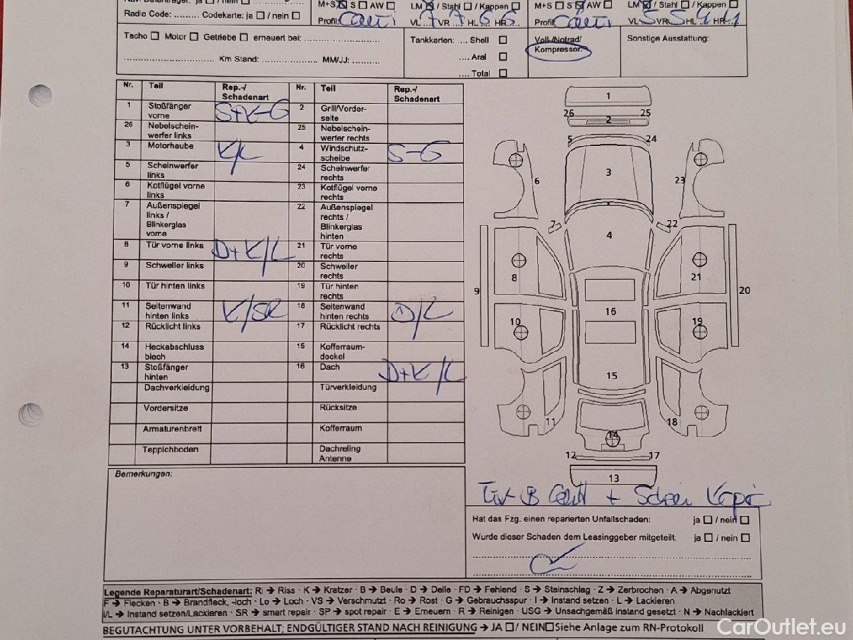 Radio Code: ........ Codekarte: ja □ / nein □
M+S ☒ S □ AW □
LM ☒ / Stahl □ / Kappen □
M+S □ S ☒ AW □
LM ☒ / Stahl □ / Kappen □
Profil:
VL VR HL HR
Profil:
VL VR HL HR
Tacho □ Motor □ Getriebe □ erneuert bei:
Km Stand: MM/JJ:
Tankkarten: ... Shell □
.... Aral □
.... Total □
Voll-/Notrad/
Kompressor:
Sonstige Ausstattung:
Nr. Teil Rep.-/Schadenart Nr. Teil Rep.-/Schadenart
1 Stoßfänger vorne S+K-G 2 Grill/Vorderseite
26 Nebelscheinwerfer links 25 Nebelscheinwerfer rechts
3 Motorhaube K/L 4 Windschutzscheibe S-G
5 Scheinwerfer links 24 Scheinwerfer rechts
6 Kotflügel vorne links 23 Kotflügel vorne rechts
7 Außenspiegel links / Blinkerglas vorne 22 Außenspiegel rechts / Blinkerglas hinten
8 Tür vorne links D+K/L 21 Tür vorne rechts
9 Schweller links 20 Schweller rechts
10 Tür hinten links 19 Tür hinten rechts
11 Seitenwand hinten links K/SR 18 Seitenwand hinten rechts D/L
12 Rücklicht links 17 Rücklicht rechts
14 Heckabschluss blech 15 Kofferraumdeckel
13 Stoßfänger hinten 16 Dach D+K/L
Dachverkleidung Türverkleidung
Vordersitze Rücksitze
Armaturenbrett Kofferraum
Teppichboden Dachreling Antenne
Bemerkungen:
1
26 2 25
5 24
6 3 23
7 22
4
8 21
9 20
16
10 19
15
11 14 18
12 17
13
Hat das Fzg. einen reparierten Unfallschaden: ja □ / nein □
Wurde dieser Schaden dem Leasinggeber mitgeteilt. ja □ / nein □
Legende Reparaturart/Schadenart: RI → Riss · K → Kratzer · B → Beule · D → Delle · FD → Fehlend · S → Steinschlag · Z → Zerbrochen · A → Abgenutzt
F → Flecken · B → Brandfleck, -loch · Lo → Loch · VS → Verschmutzt · Ro → Rost · G → Gebrauchsspur · I → Instand setzen · L → Lackieren
I/L → Instand setzen/Lackieren · SR → smart repair · SP → spot repair · E → Erneuern · R → Reinigen · USG → Unsachgemäß instand gesetzt · N → Nachlackiert
BEGUTACHTUNG UNTER VORBEHALT; ENDGÜLTIGER STAND NACH REINIGUNG → JA □ / NEIN □ Siehe Anlage zum RN-Protokoll
CarOutlet.eu